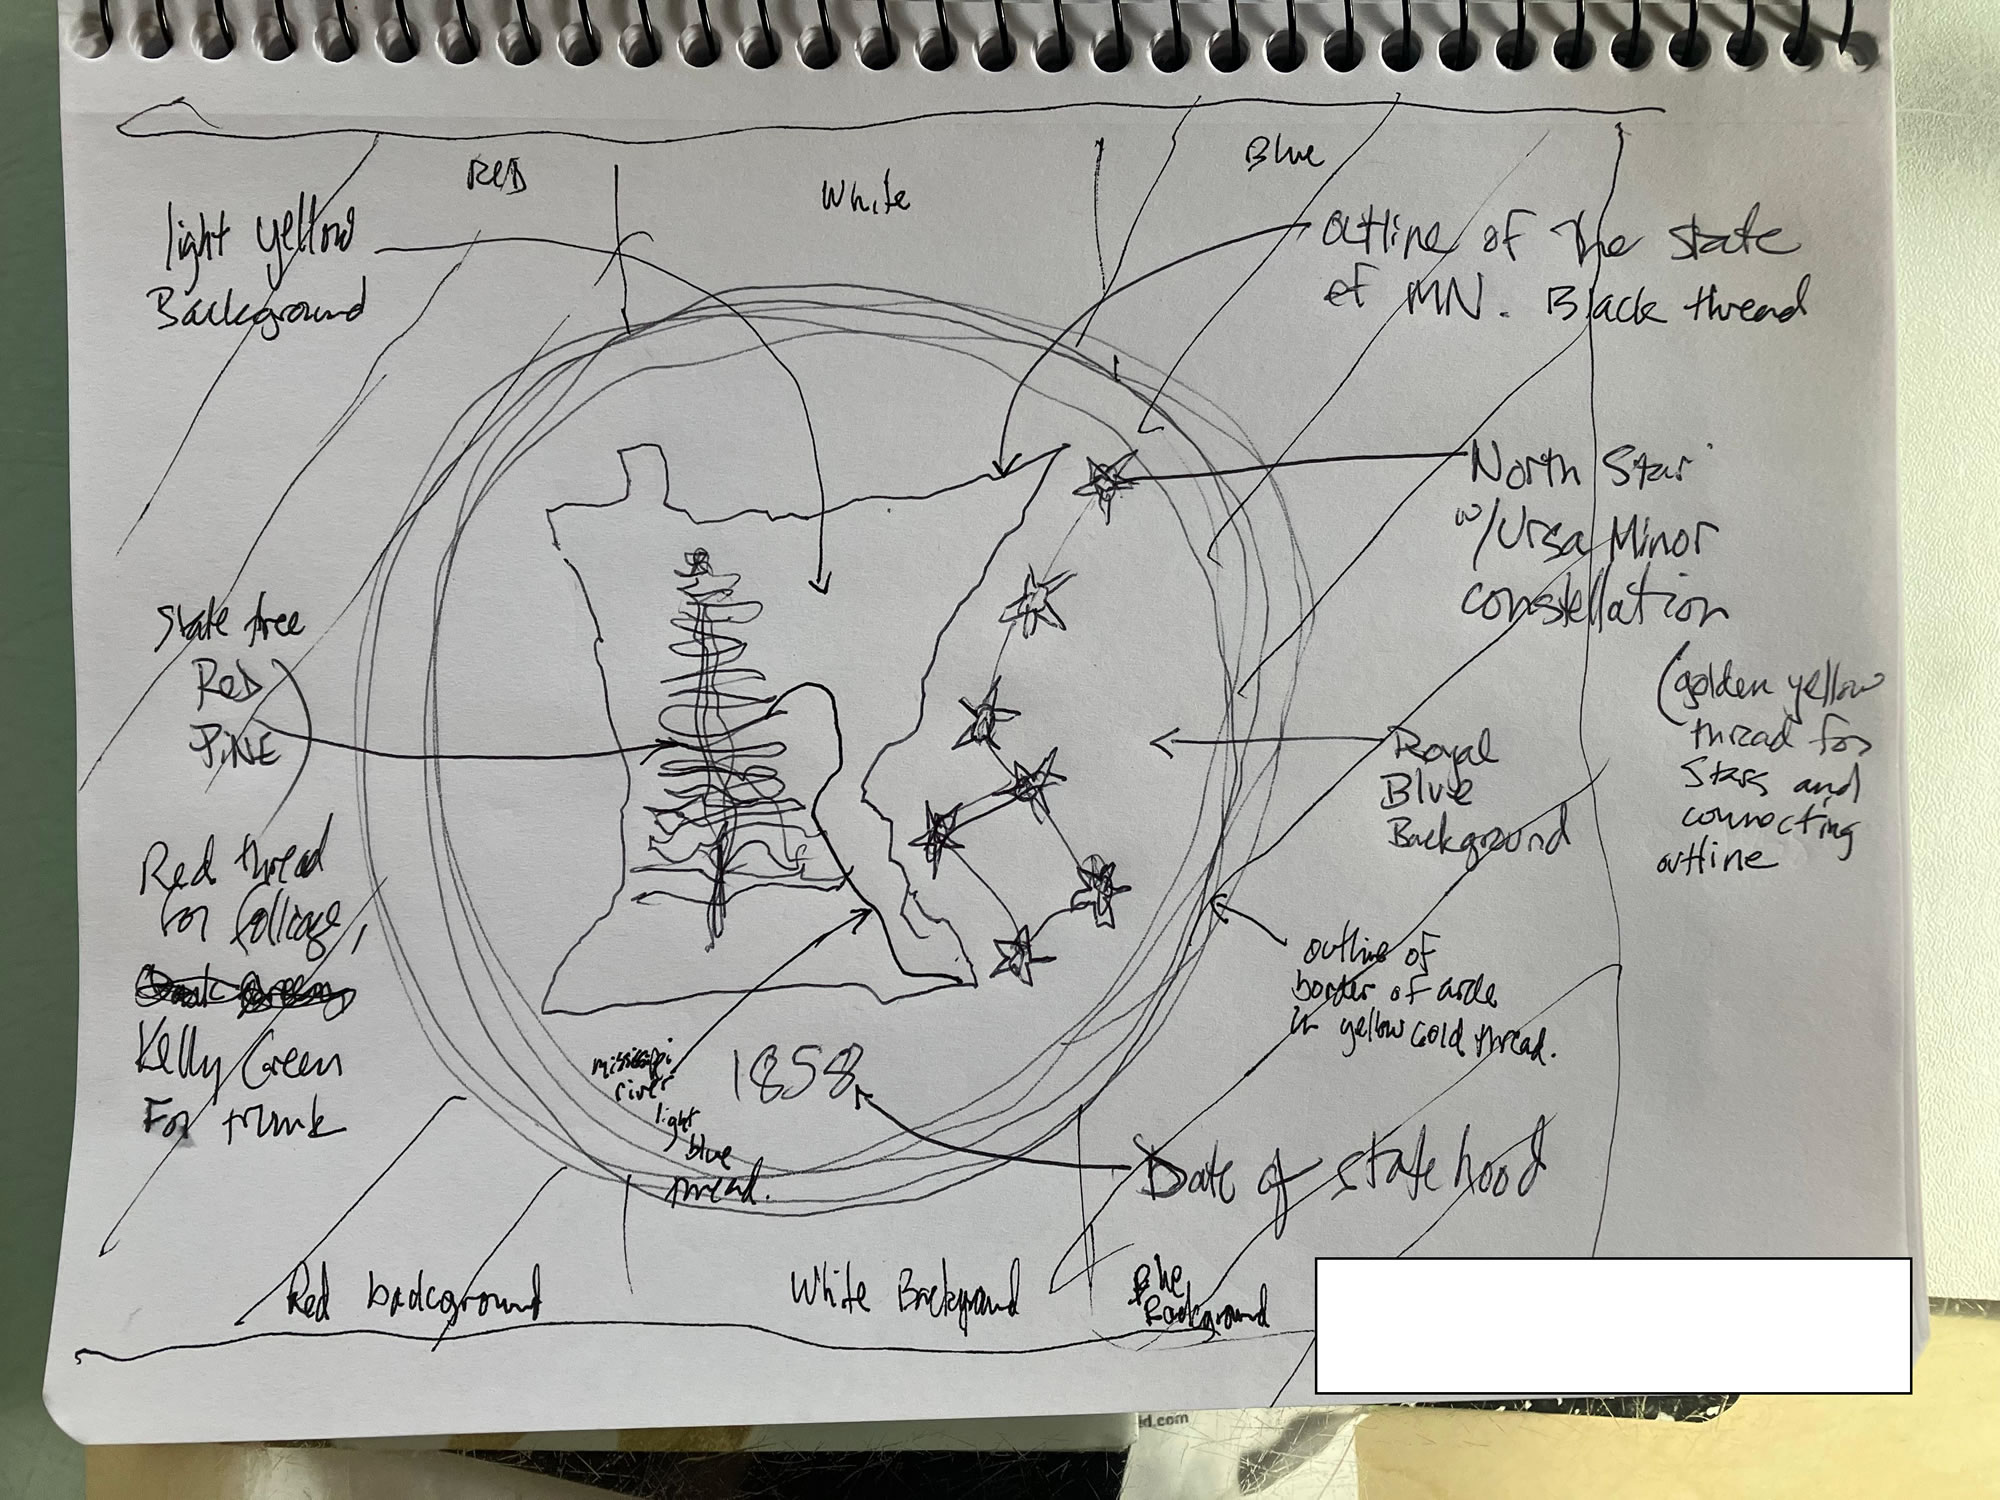 RED
White
Blue
light yellow
Background
Outline of The state
of MN. Black thread
North Star
w/Ursa Minor
constellation
(golden yellow
thread for
Stars and
connecting
outline
State tree
Red
PiNE
Royal
Blue
Background
Red thread
for folliage,
Kelly Green
For trunk
outline of
border of circle
in yellow Gold thread.
mississippi
river
light
blue
thread.
1858
Date of statehood
Red background
White Background
Blue
Background
ld.com